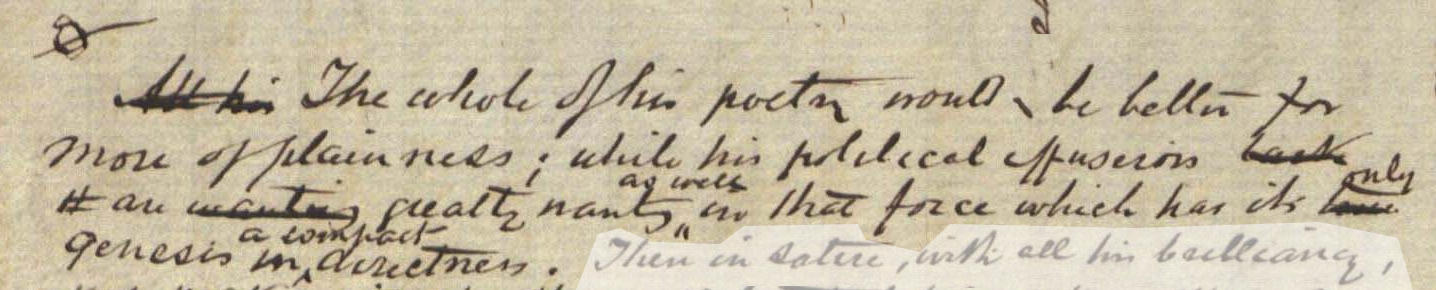 All his The whole of his poetry would be better for
more of plainness; while his political effusions lack
are wanting greatly wanting as well in that force which has its only
genesis in a compact directness. Then in satire, with all his brilliancy,